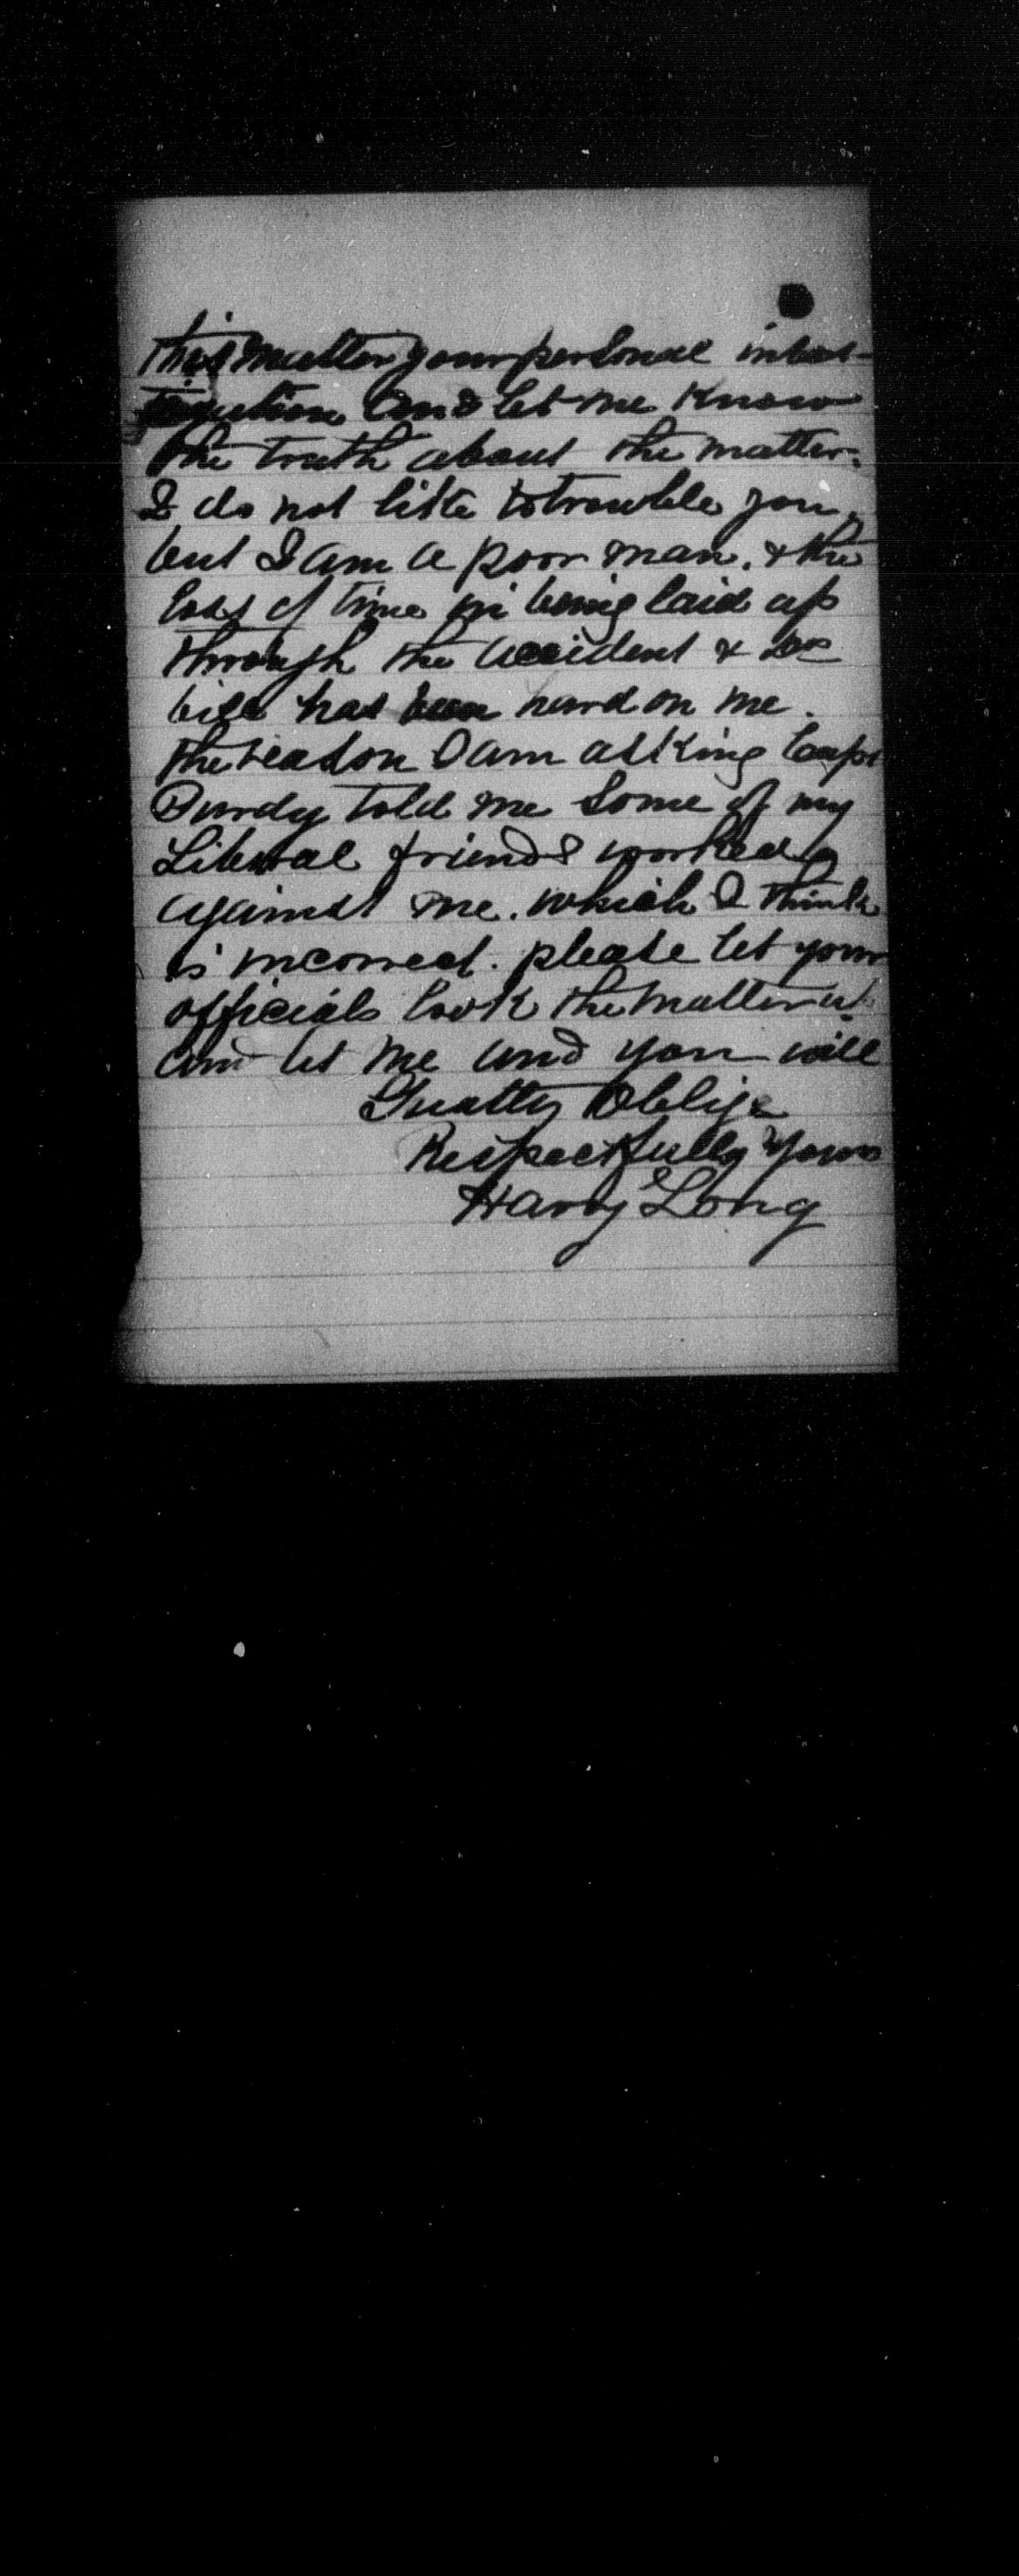 this matter your personal inves-
and let me know
the truth about the matter.
I do not like to trouble you,
but I am a poor man. & the
loss of time in being laid up
through the accident & Drs
bill has been hard on me.
the reason I am asking Capt
Purdy told me some of my
Liberal friends worked
against me. which I think
is incorrect. please let your
officials look the matter up
and let me and you will
Greatly Oblige
Respectfully Yours
Harry Long